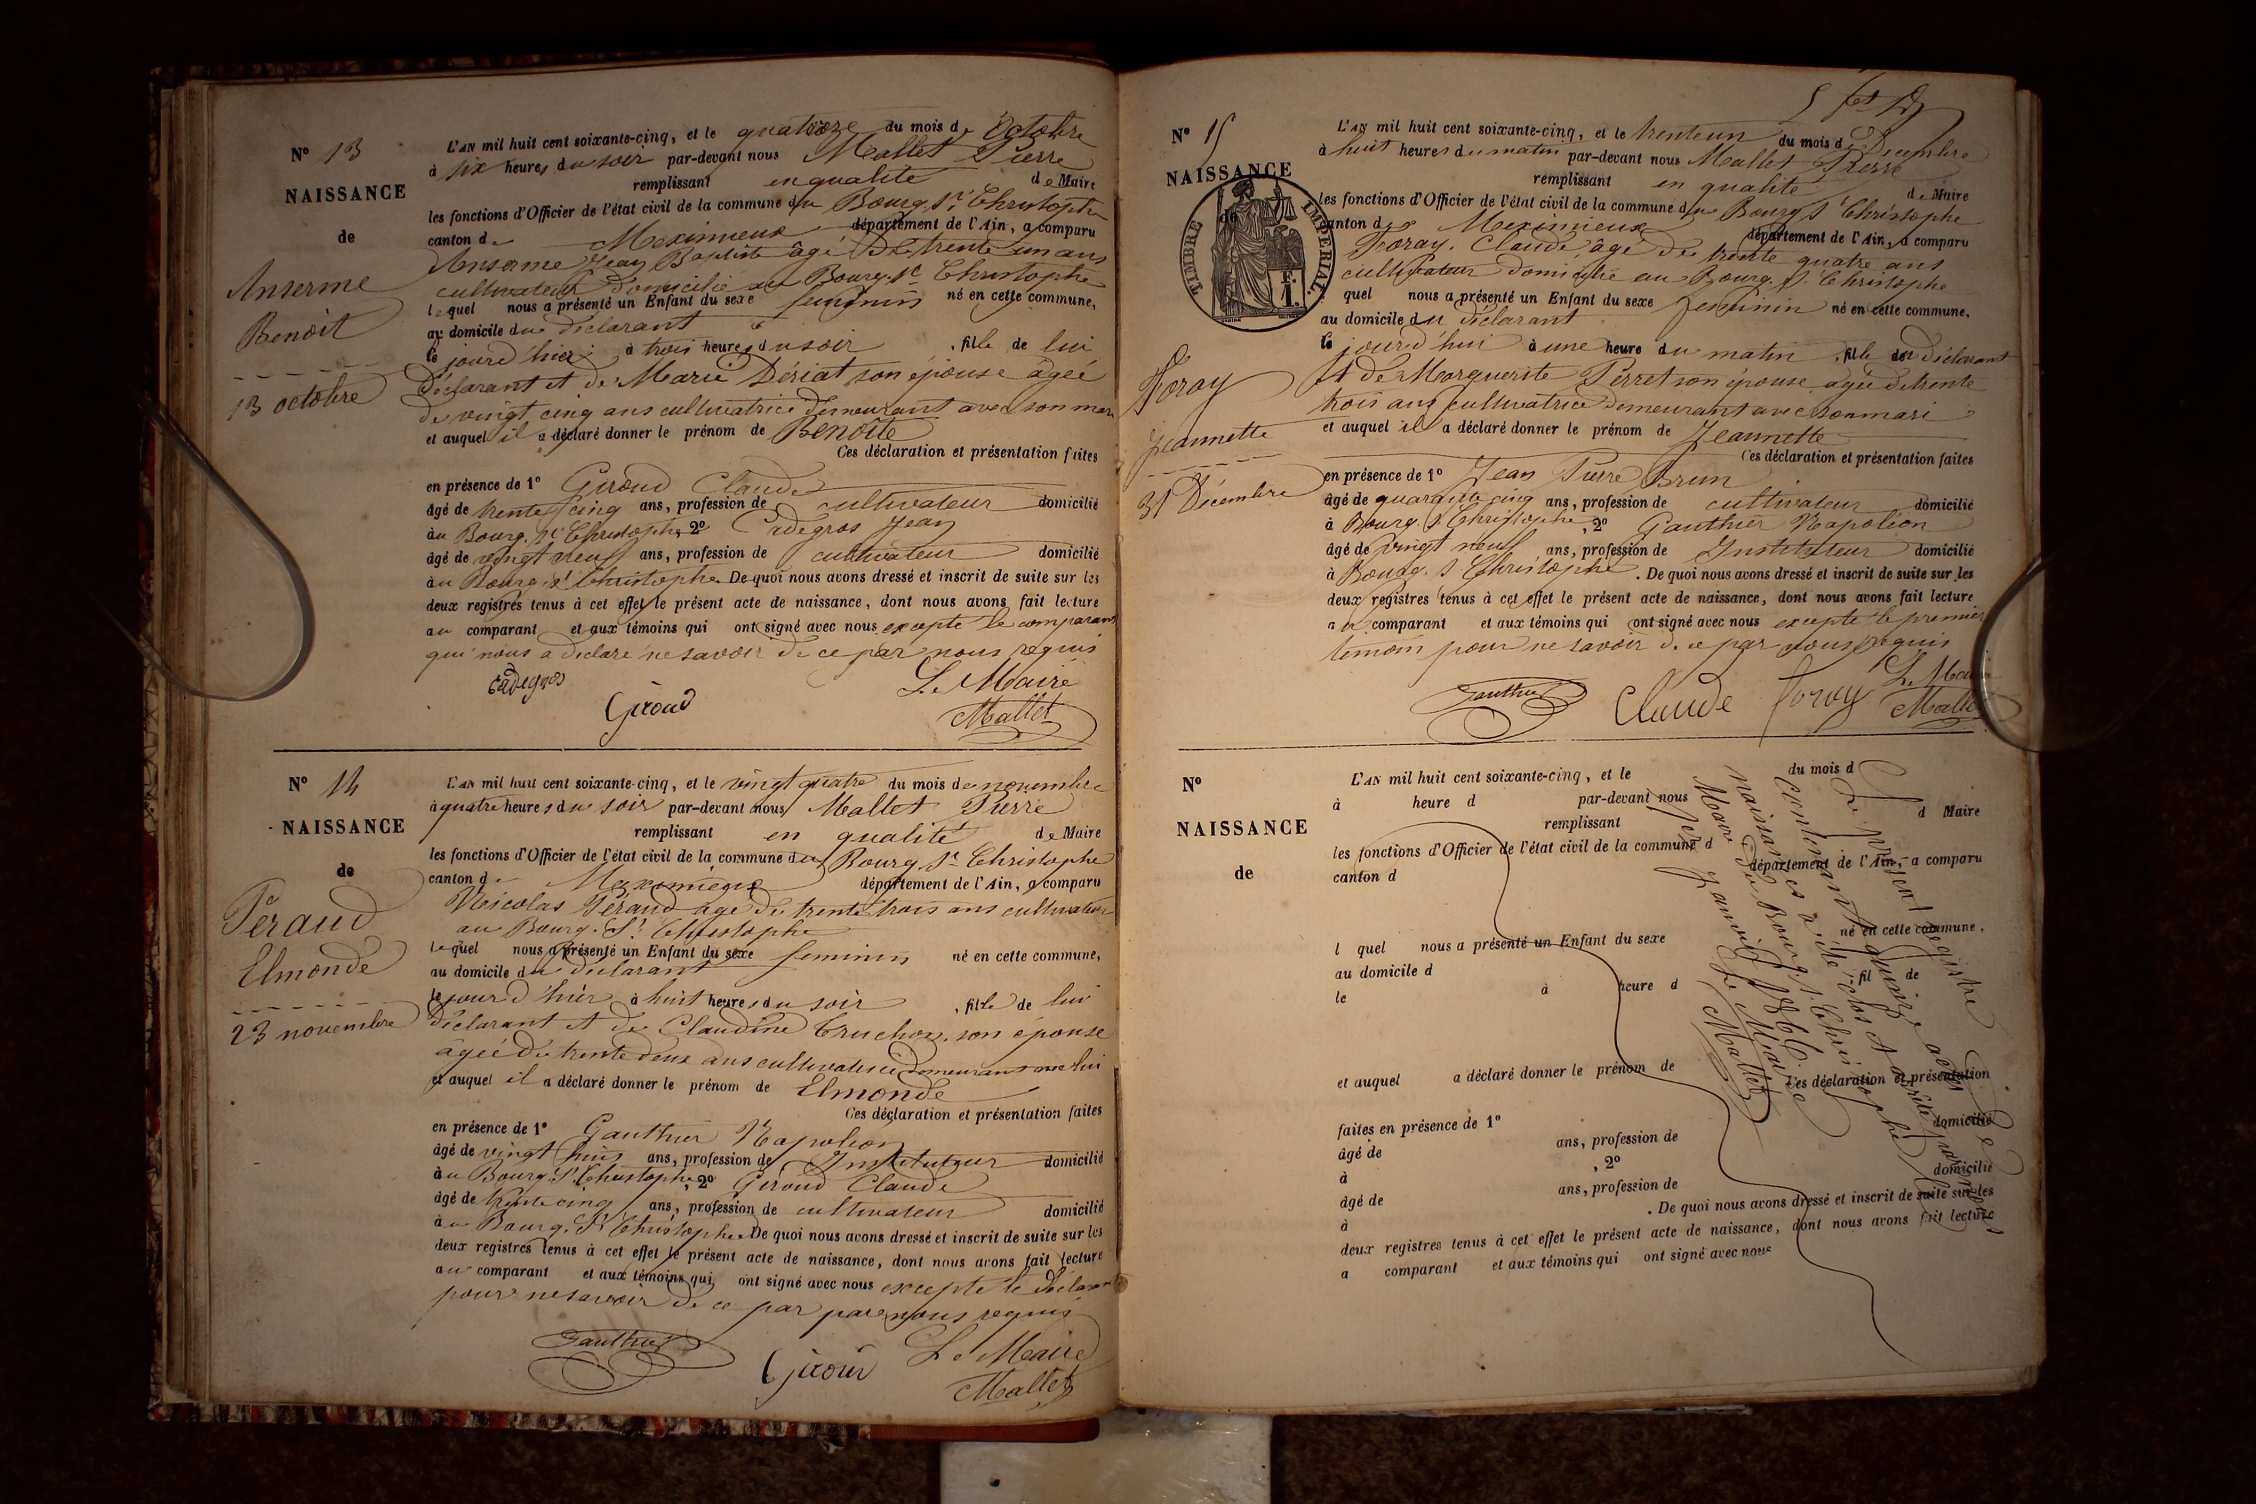 N° 13
NAISSANCE
de
Anserme
Benoit
13 octobre
L'AN mil huit cent soixante-cinq, et le quatorze du mois de Octobre
à six heures du soir par-devant nous Mallet Pierre
remplissant en qualité de Maire
les fonctions d'Officier de l'état civil de la commune du Bourg St Christophe
canton de Meximieux département de l'Ain, a comparu
Anserme Jean Baptiste âgé de trente un ans
cultivateur domicilié au Bourg St Christophe
lequel nous a présenté un Enfant du sexe feminin né en cette commune,
au domicile du déclarant
le jour d'hier à trois heures du soir , fille de lui
déclarant et de Marie Deriat son épouse âgée
de vingt cinq ans cultivatrice demeurant avec son mari
et auquel il a déclaré donner le prénom de Benoite
Ces déclaration et présentation faites
en présence de 1° Giroud Claude
âgé de trente cinq ans, profession de cultivateur domicilié
au Bourg St Christophe, 2° Cadegros Jean
âgé de vingt neuf ans, profession de cultivateur domicilié
au Bourg St Christophe. De quoi nous avons dressé et inscrit de suite sur les
deux registres tenus à cet effet le présent acte de naissance, dont nous avons fait lecture
au comparant et aux témoins qui ont signé avec nous excepté le comparant
qui nous a déclaré ne savoir de ce par nous requis
Cadegros Giroud Le Maire
Mallet
N° 14
NAISSANCE
de
Péraud
Elmonde
23 novembre
L'AN mil huit cent soixante-cinq, et le vingt quatre du mois de novembre
à quatre heures du soir par-devant nous Mallet Pierre
remplissant en qualité de Maire
les fonctions d'Officier de l'état civil de la commune du Bourg St Christophe
canton de Meximieux département de l'Ain, a comparu
Nicolas Péraud âgé de trente trois ans cultivateur
au Bourg St Christophe
lequel nous a présenté un Enfant du sexe feminin né en cette commune,
au domicile du déclarant
le jour d'hier à huit heures du soir , fille de lui
déclarant et de Claudine Truchon son épouse
âgée de trente deux ans cultivatrice demeurant avec lui
et auquel il a déclaré donner le prénom de Elmonde
Ces déclaration et présentation faites
en présence de 1° Gauthier Napoléon
âgé de vingt huit ans, profession de Instituteur domicilié
au Bourg St Christophe, 2° Giroud Claude
âgé de trente cinq ans, profession de cultivateur domicilié
au Bourg St Christophe. De quoi nous avons dressé et inscrit de suite sur les
deux registres tenus à cet effet le présent acte de naissance, dont nous avons fait lecture
au comparant et aux témoins qui ont signé avec nous excepté le déclarant
pour ne savoir de ce par par nous requis
Gauthier Giroud Le Maire
Mallet
N° 15
NAISSANCE
de
TIMBRE IMPERIAL
F.
1.
Foray
Jeannette
31 Décembre
L'AN mil huit cent soixante-cinq, et le trente un du mois de Décembre
à huit heures du matin par-devant nous Mallet Pierre
remplissant en qualité de Maire
les fonctions d'Officier de l'état civil de la commune du Bourg St Christophe
canton de Meximieux département de l'Ain, a comparu
Foray Claude âgé de trente quatre ans
cultivateur domicilié au Bourg St Christophe
quel nous a présenté un Enfant du sexe feminin né en cette commune,
au domicile du déclarant
le jour d'hui à une heure du matin , fille du déclarant
et de Marguerite Perret son épouse âgée de trente
trois ans cultivatrice demeurant avec son mari
et auquel il a déclaré donner le prénom de Jeannette
Ces déclaration et présentation faites
en présence de 1° Jean Pierre Brun
âgé de quarante cinq ans, profession de cultivateur domicilié
à Bourg St Christophe, 2° Gauthier Napoléon
âgé de vingt neuf ans, profession de Instituteur domicilié
à Bourg St Christophe. De quoi nous avons dressé et inscrit de suite sur les
deux registres tenus à cet effet le présent acte de naissance, dont nous avons fait lecture
au comparant et aux témoins qui ont signé avec nous excepté le premier
témoin pour ne savoir de ce par nous requis
Gauthier Claude foray Le Maire
Mallet
N°
NAISSANCE
de
L'AN mil huit cent soixante-cinq, et le du mois d
à heure d par-devant nous
remplissant d Maire
les fonctions d'Officier de l'état civil de la commune d
canton d département de l'Ain, a comparu
l quel nous a présenté un Enfant du sexe né en cette commune,
au domicile d
le à heure d fil de
et auquel a déclaré donner le prénom de
Ces déclaration et présentation
faites en présence de 1°
âgé de ans, profession de domicilié
à , 2°
âgé de ans, profession de domicilié
à . De quoi nous avons dressé et inscrit de suite sur les
deux registres tenus à cet effet le présent acte de naissance, dont nous avons fait lecture
a comparant et aux témoins qui ont signé avec nous
Le présent registre
contenant quinze actes de
naissances a été clos et arrêté par nous
Maire du Bourg St Christophe le
1er Janvier 1866
Le Maire
Mallet